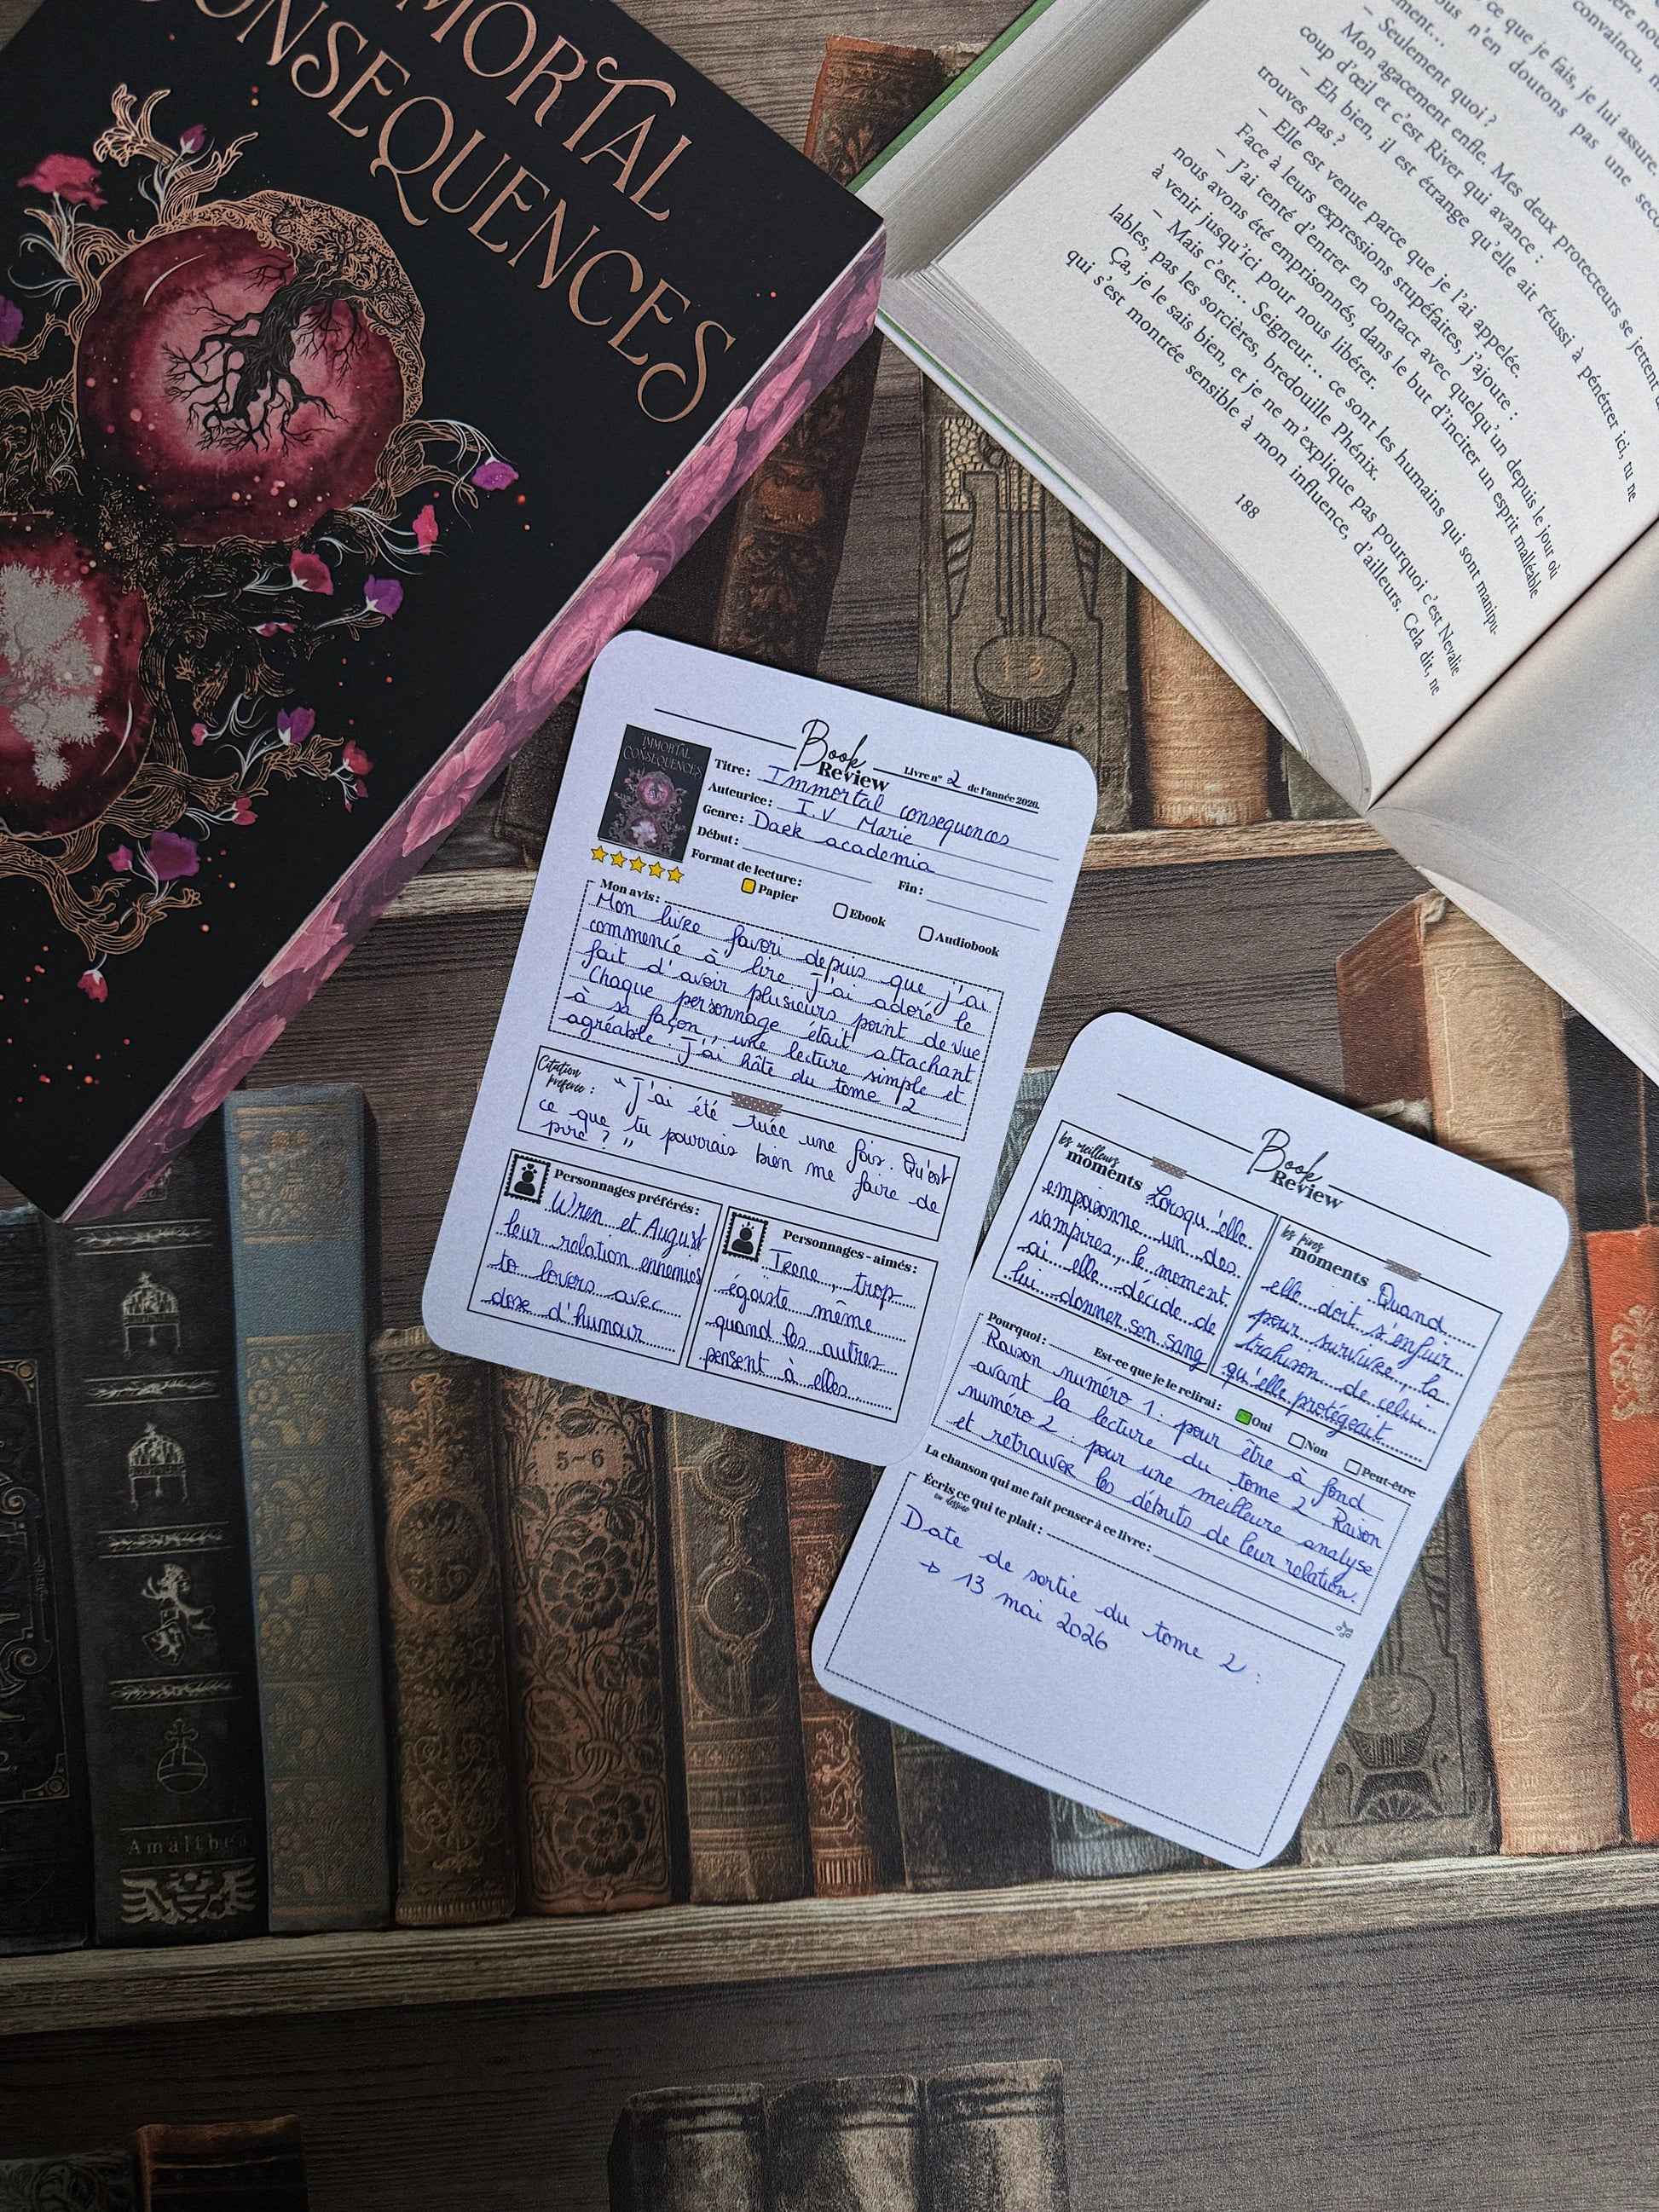 MORTAL
CONSEQUENCES
ce que je fais, je lui assure.
convaincu,
n'en doutons pas une
– Seulement quoi ?
Mon agacement enfle. Mes deux protecteurs se jettent
coup d'œil et c'est River qui avance :
– Eh bien, il est étrange qu'elle ait réussi à pénétrer ici, tu ne
trouves pas ?
– Elle est venue parce que je l'ai appelée.
Face à leurs expressions stupéfaites, j'ajoute :
– J'ai tenté d'entrer en contact avec quelqu'un depuis le jour où
nous avons été emprisonnés, dans le but d'inciter un esprit malléable
à venir jusqu'ici pour nous libérer.
– Mais c'est… Seigneur… ce sont les humains qui sont manipu-
lables, pas les sorcières, bredouille Phénix.
Ça, je le sais bien, et je ne m'explique pas pourquoi c'est Nevalie
qui s'est montrée sensible à mon influence, d'ailleurs. Cela dit, ne
188
13
Book
Review
Livre n° 2 de l'année 2026.
IMMORTAL
CONSEQUENCES
Titre : Immortal consequences
Auteurice : I.V Marie
Genre : Dark academia
Début :
Fin :
Format de lecture :
Papier
Ebook
Audiobook
Mon avis :
Mon livre favori depuis que j'ai
commencé à lire. J'ai adoré le
fait d'avoir plusieurs point de vue
Chaque personnage était attachant
à sa façon, une lecture simple et
agréable. J'ai hâte du tome 2
Citation
préférée : "J'ai été tuée une fois. Qu'est
ce que tu pourrais bien me faire de
pire ? "
Personnages préférés :
Wren et August
leur relation ennemies
to lovers avec
dose d'humour
Personnages - aimés :
Irene, trop
égoïste même
quand les autres
pensent à elles.
Book
Review
les meilleurs
moments
Lorsqu'elle
empoisonne un des
vampires, le moment
où elle décide de
lui donner son sang
les pires
moments
Quand
elle doit s'enfuir
pour survivre, la
trahison de celui
qu'elle protégeait
Pourquoi :
Est-ce que je le relirai :
Oui
Non
Peut-être
Raison numéro 1 : pour être à fond
avant la lecture du tome 2 Raison
numéro 2 : pour une meilleure analyse
et retrouver les débuts de leur relation.
La chanson qui me fait penser à ce livre :
Écris ce qui te plait :
ou dessine
Date de sortie du tome 2 :
→ 13 mai 2026
5-6
Amalthea